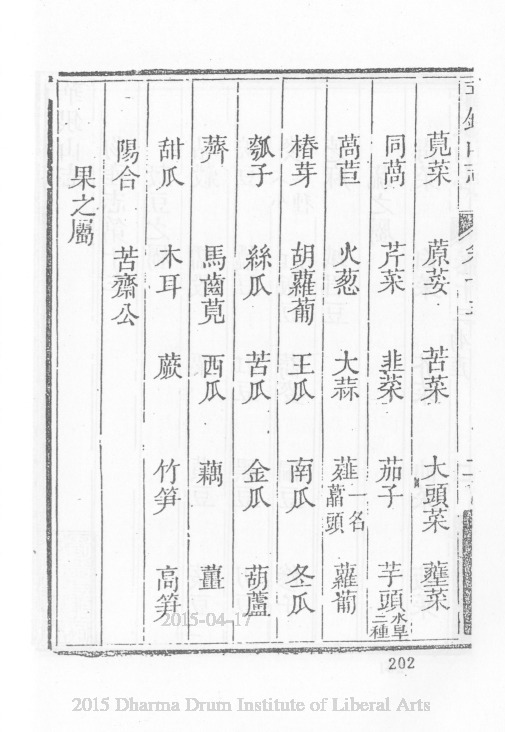 莧菜 蒝荽 苦菜 大頭菜 蕹菜
同蒿 芹菜 韭菜 茄子 芋頭水旱二種
萵苣 火葱 大蒜 薤一名藠頭 蘿蔔
椿芽 胡蘿蔔 王瓜 南瓜 冬瓜
瓠子 絲瓜 苦瓜 金瓜 葫蘆
薺 馬齒莧 西瓜 藕 薑
甜瓜 木耳 蕨 竹笋 高笋
陽合 苦齋公
果之屬
202
2015-04-17
2015 Dharma Drum Institute of Liberal Arts